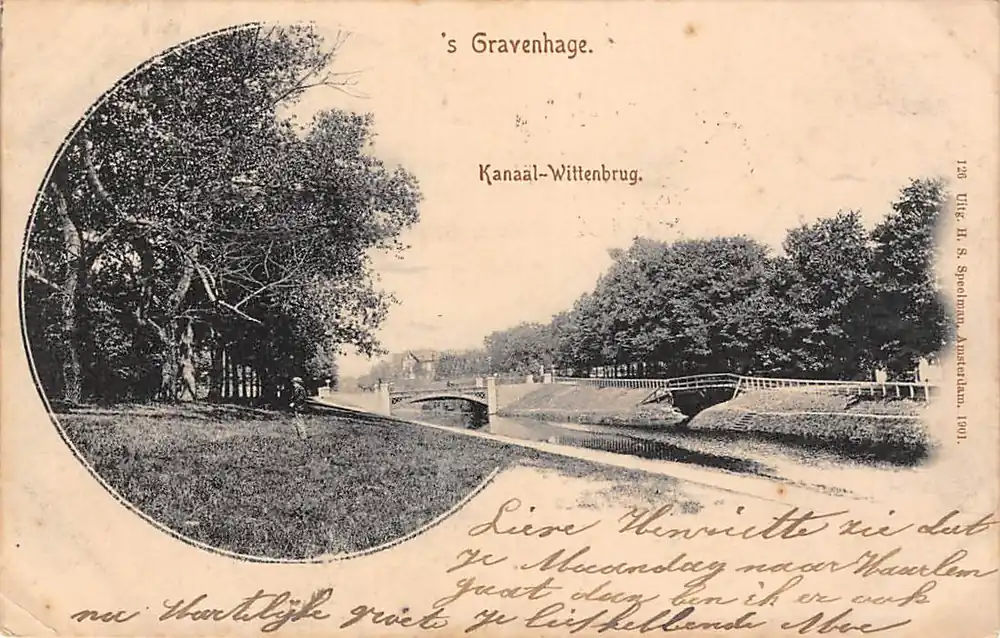 's Gravenhage.
Kanaäl-Wittenbrug.
126 Uitg. H. S. Speelman, Amsterdam. 1901.
Lieve Henriette zie dat
je Maandag naar Haarlem
gaat dan ben ik er ook
nu Hartelijk groete je liefhebbende